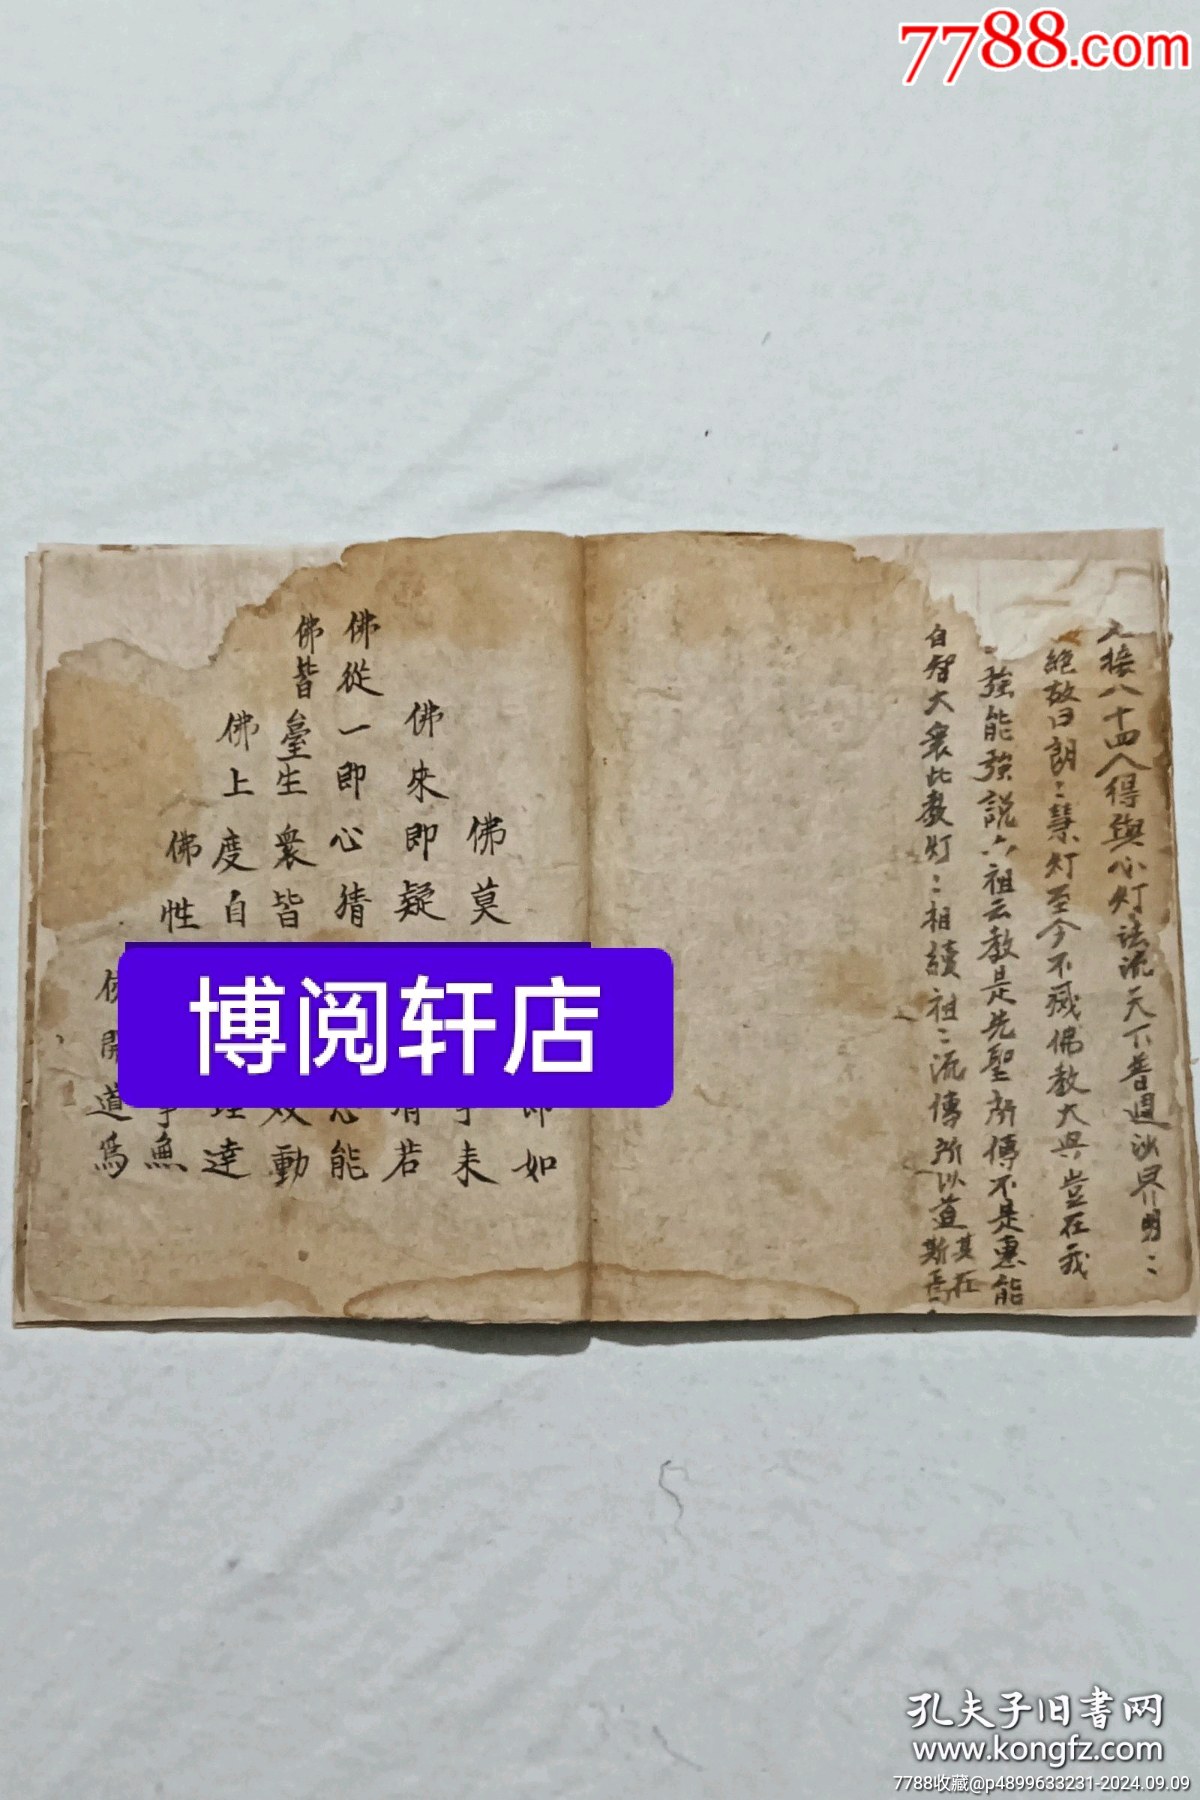 7788.com
接八十四人得與心灯法流天下普週沙界明〻
絕故曰朗〻慧灯至今不滅佛教大興豈在我
強能強說六祖云教是先聖所傳不是惠能
自智大衆此教灯〻相續祖〻流傳所以道其在斯焉
佛莫
佛來即疑
佛從一即心猜
佛皆臺生衆皆
佛上度自
佛性
即如
未
若
心能
動
達
無
開
道為
博阅轩店
孔夫子旧书网
www.kongfz.com
7788收藏@p4899633231-2024.09.09